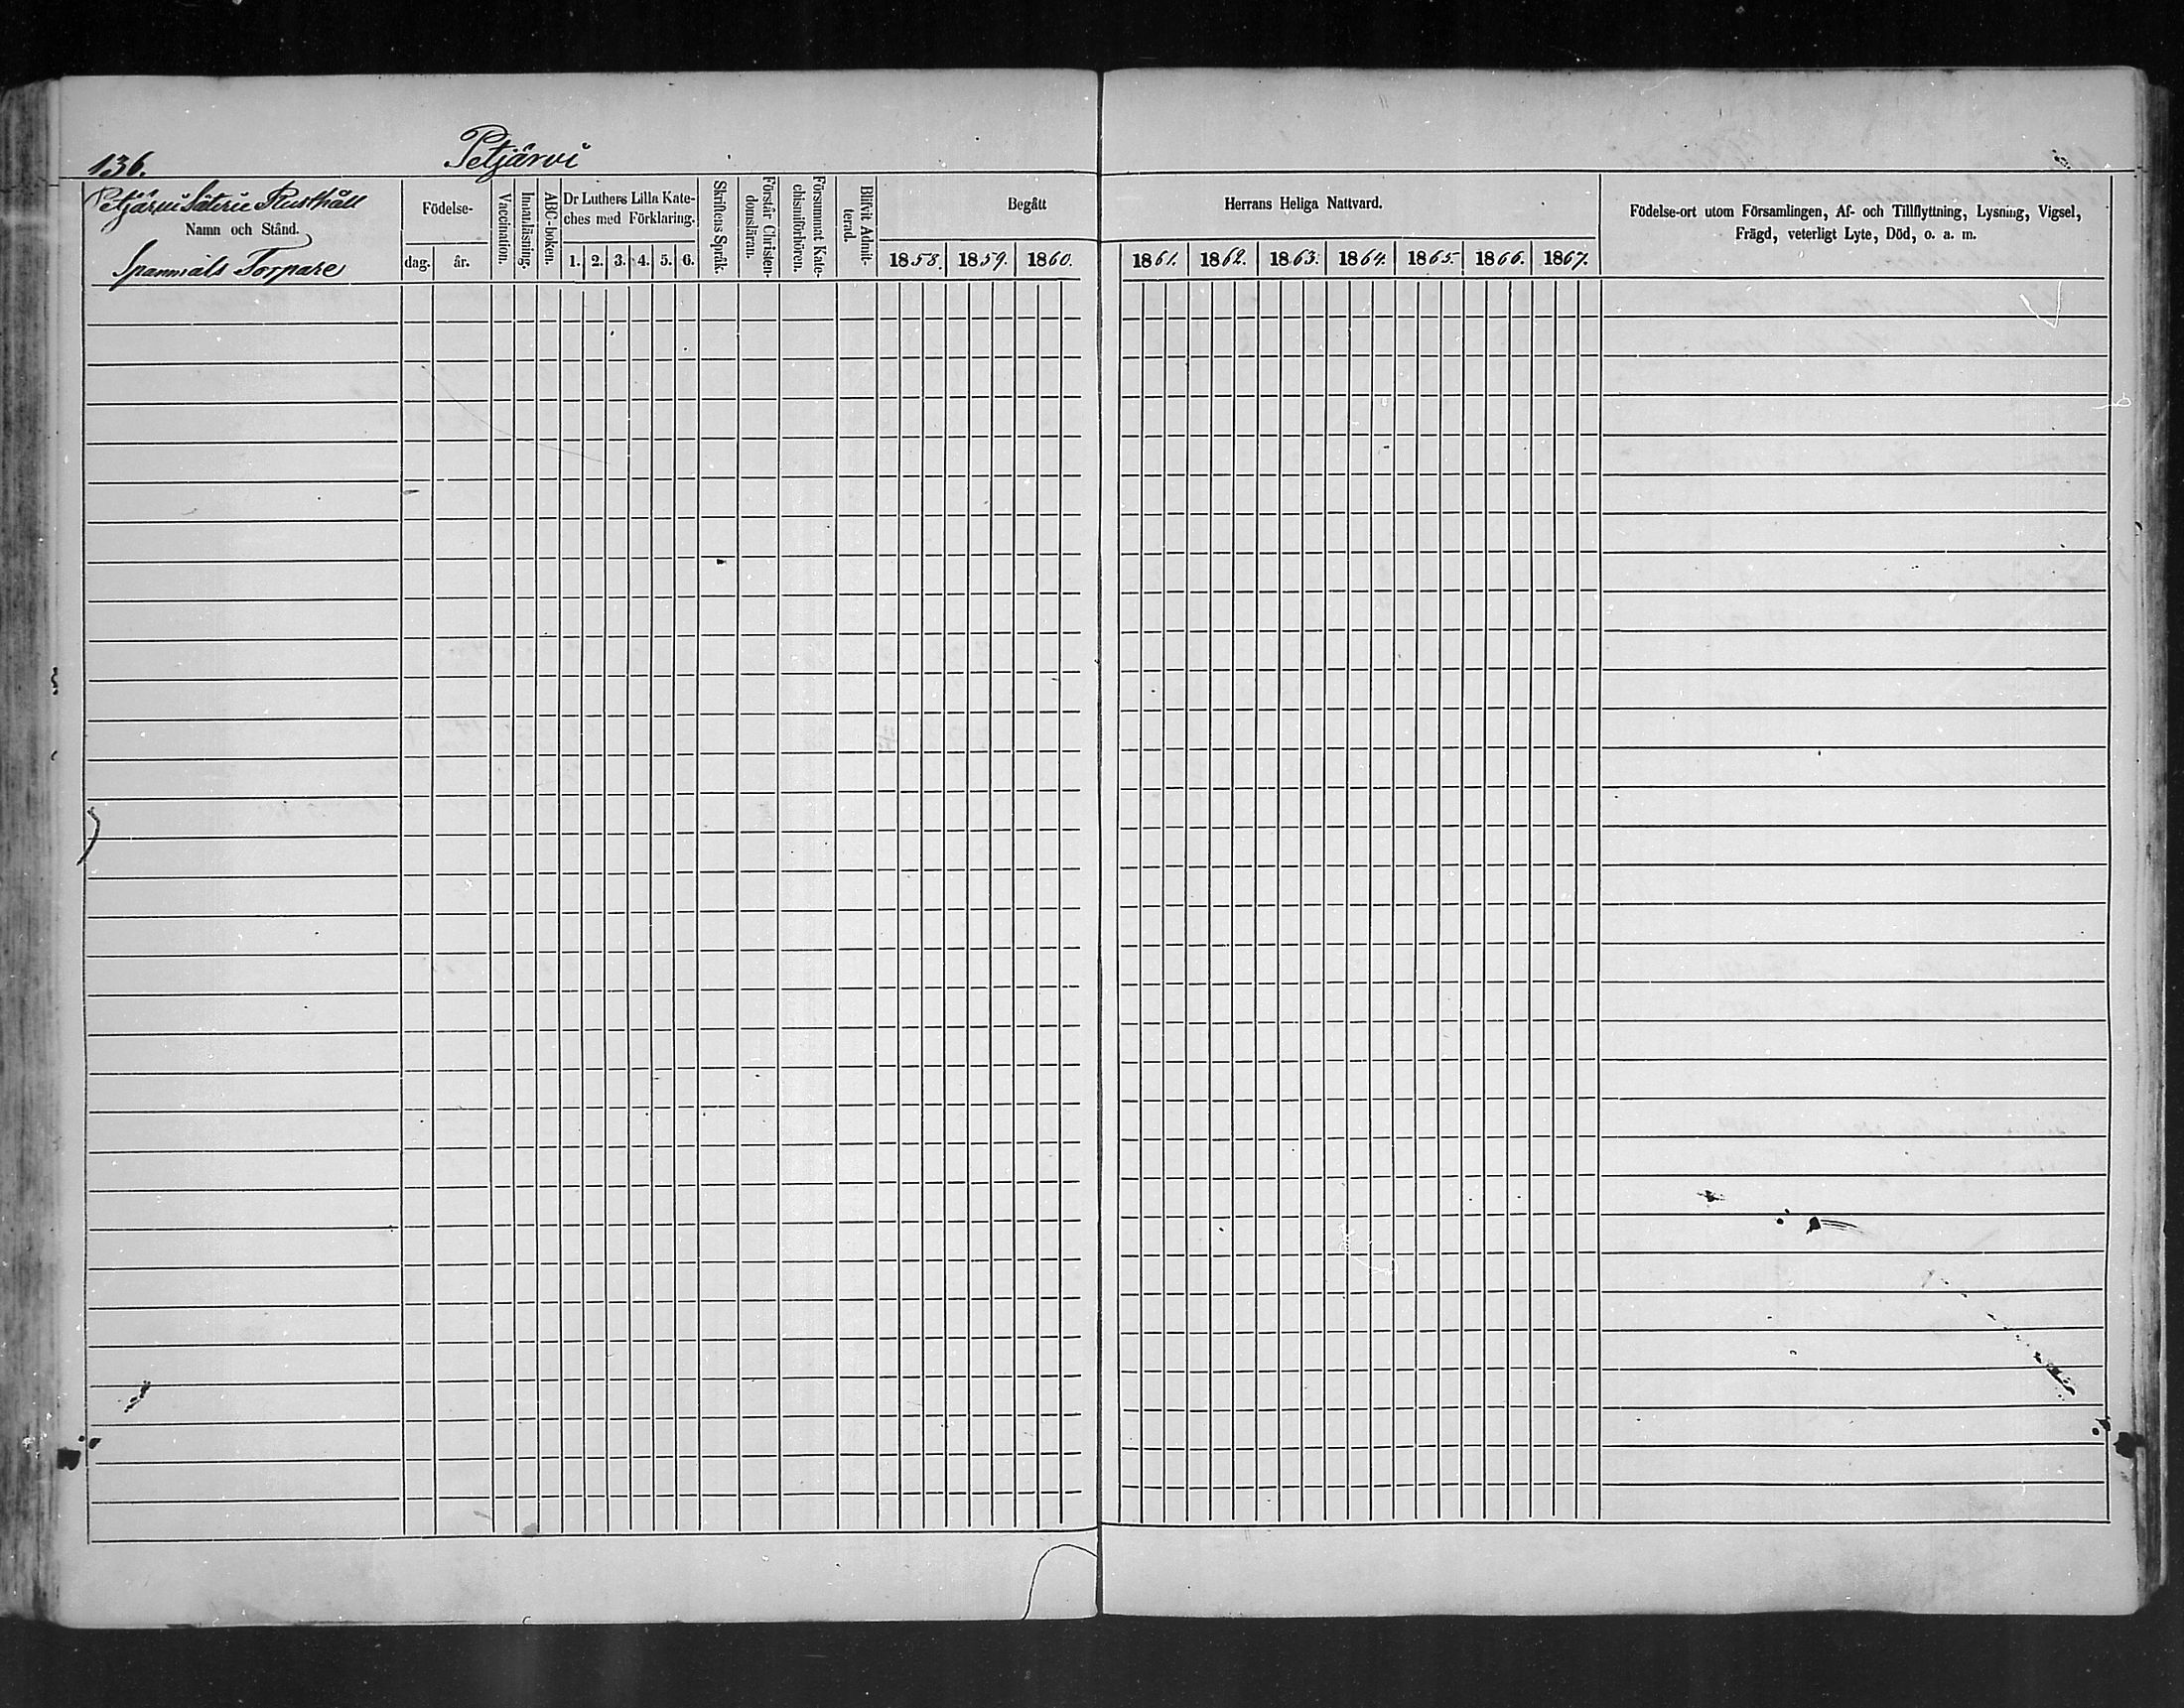 136.
Petjärvi
Petjärvi Säterie Rusthåll
Namn och Stånd.
Spanmåls Torpare
Födelse-
dag.
år.
Vaccination.
Innanläsning.
ABC-boken.
Dr Luthers Lilla Kate-
ches med Förklaring.
1. 2. 3. 4. 5. 6.
Skriftens Språk.
Förstår Christen-
domsläran.
Försummat Kate-
chismiförhören.
Blifvit Admit-
terad.
Begått
1858. 1859. 1860.
Herrans Heliga Nattvard.
1861. 1862. 1863. 1864. 1865. 1866. 1867.
Födelse-ort utom Församlingen, Af- och Tillflyttning, Lysning, Vigsel,
Frägd, veterligt Lyte, Död, o. a. m.